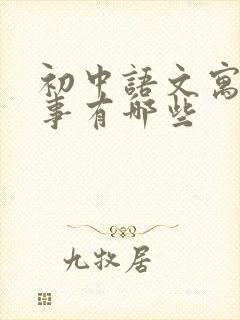 初中語文寓
事有哪些
九牧居